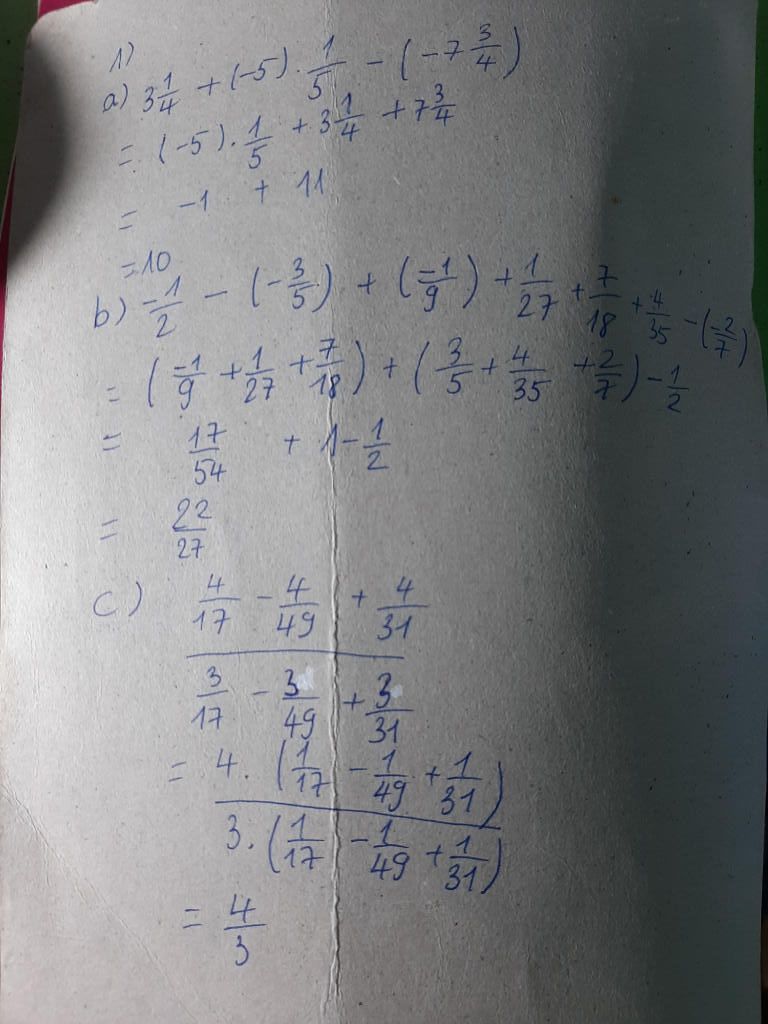 1)
a) 3 1/4 + (-5) . 1/5 - (-7 3/4)
= (-5) . 1/5 + 3 1/4 + 7 3/4
= -1 + 11
= 10
b) -1/2 - (-3/5) + (-1/9) + 1/27 + 7/18 + 4/35 - (-2/7)
= (-1/9 + 1/27 + 7/18) + (3/5 + 4/35 + 2/7) - 1/2
= 17/54 + 1 - 1/2
= 22/27
c) 4/17 - 4/49 + 4/31
3/17 - 3/49 + 3/31
= 4. (1/17 - 1/49 + 1/31)
3. (1/17 - 1/49 + 1/31)
= 4/3